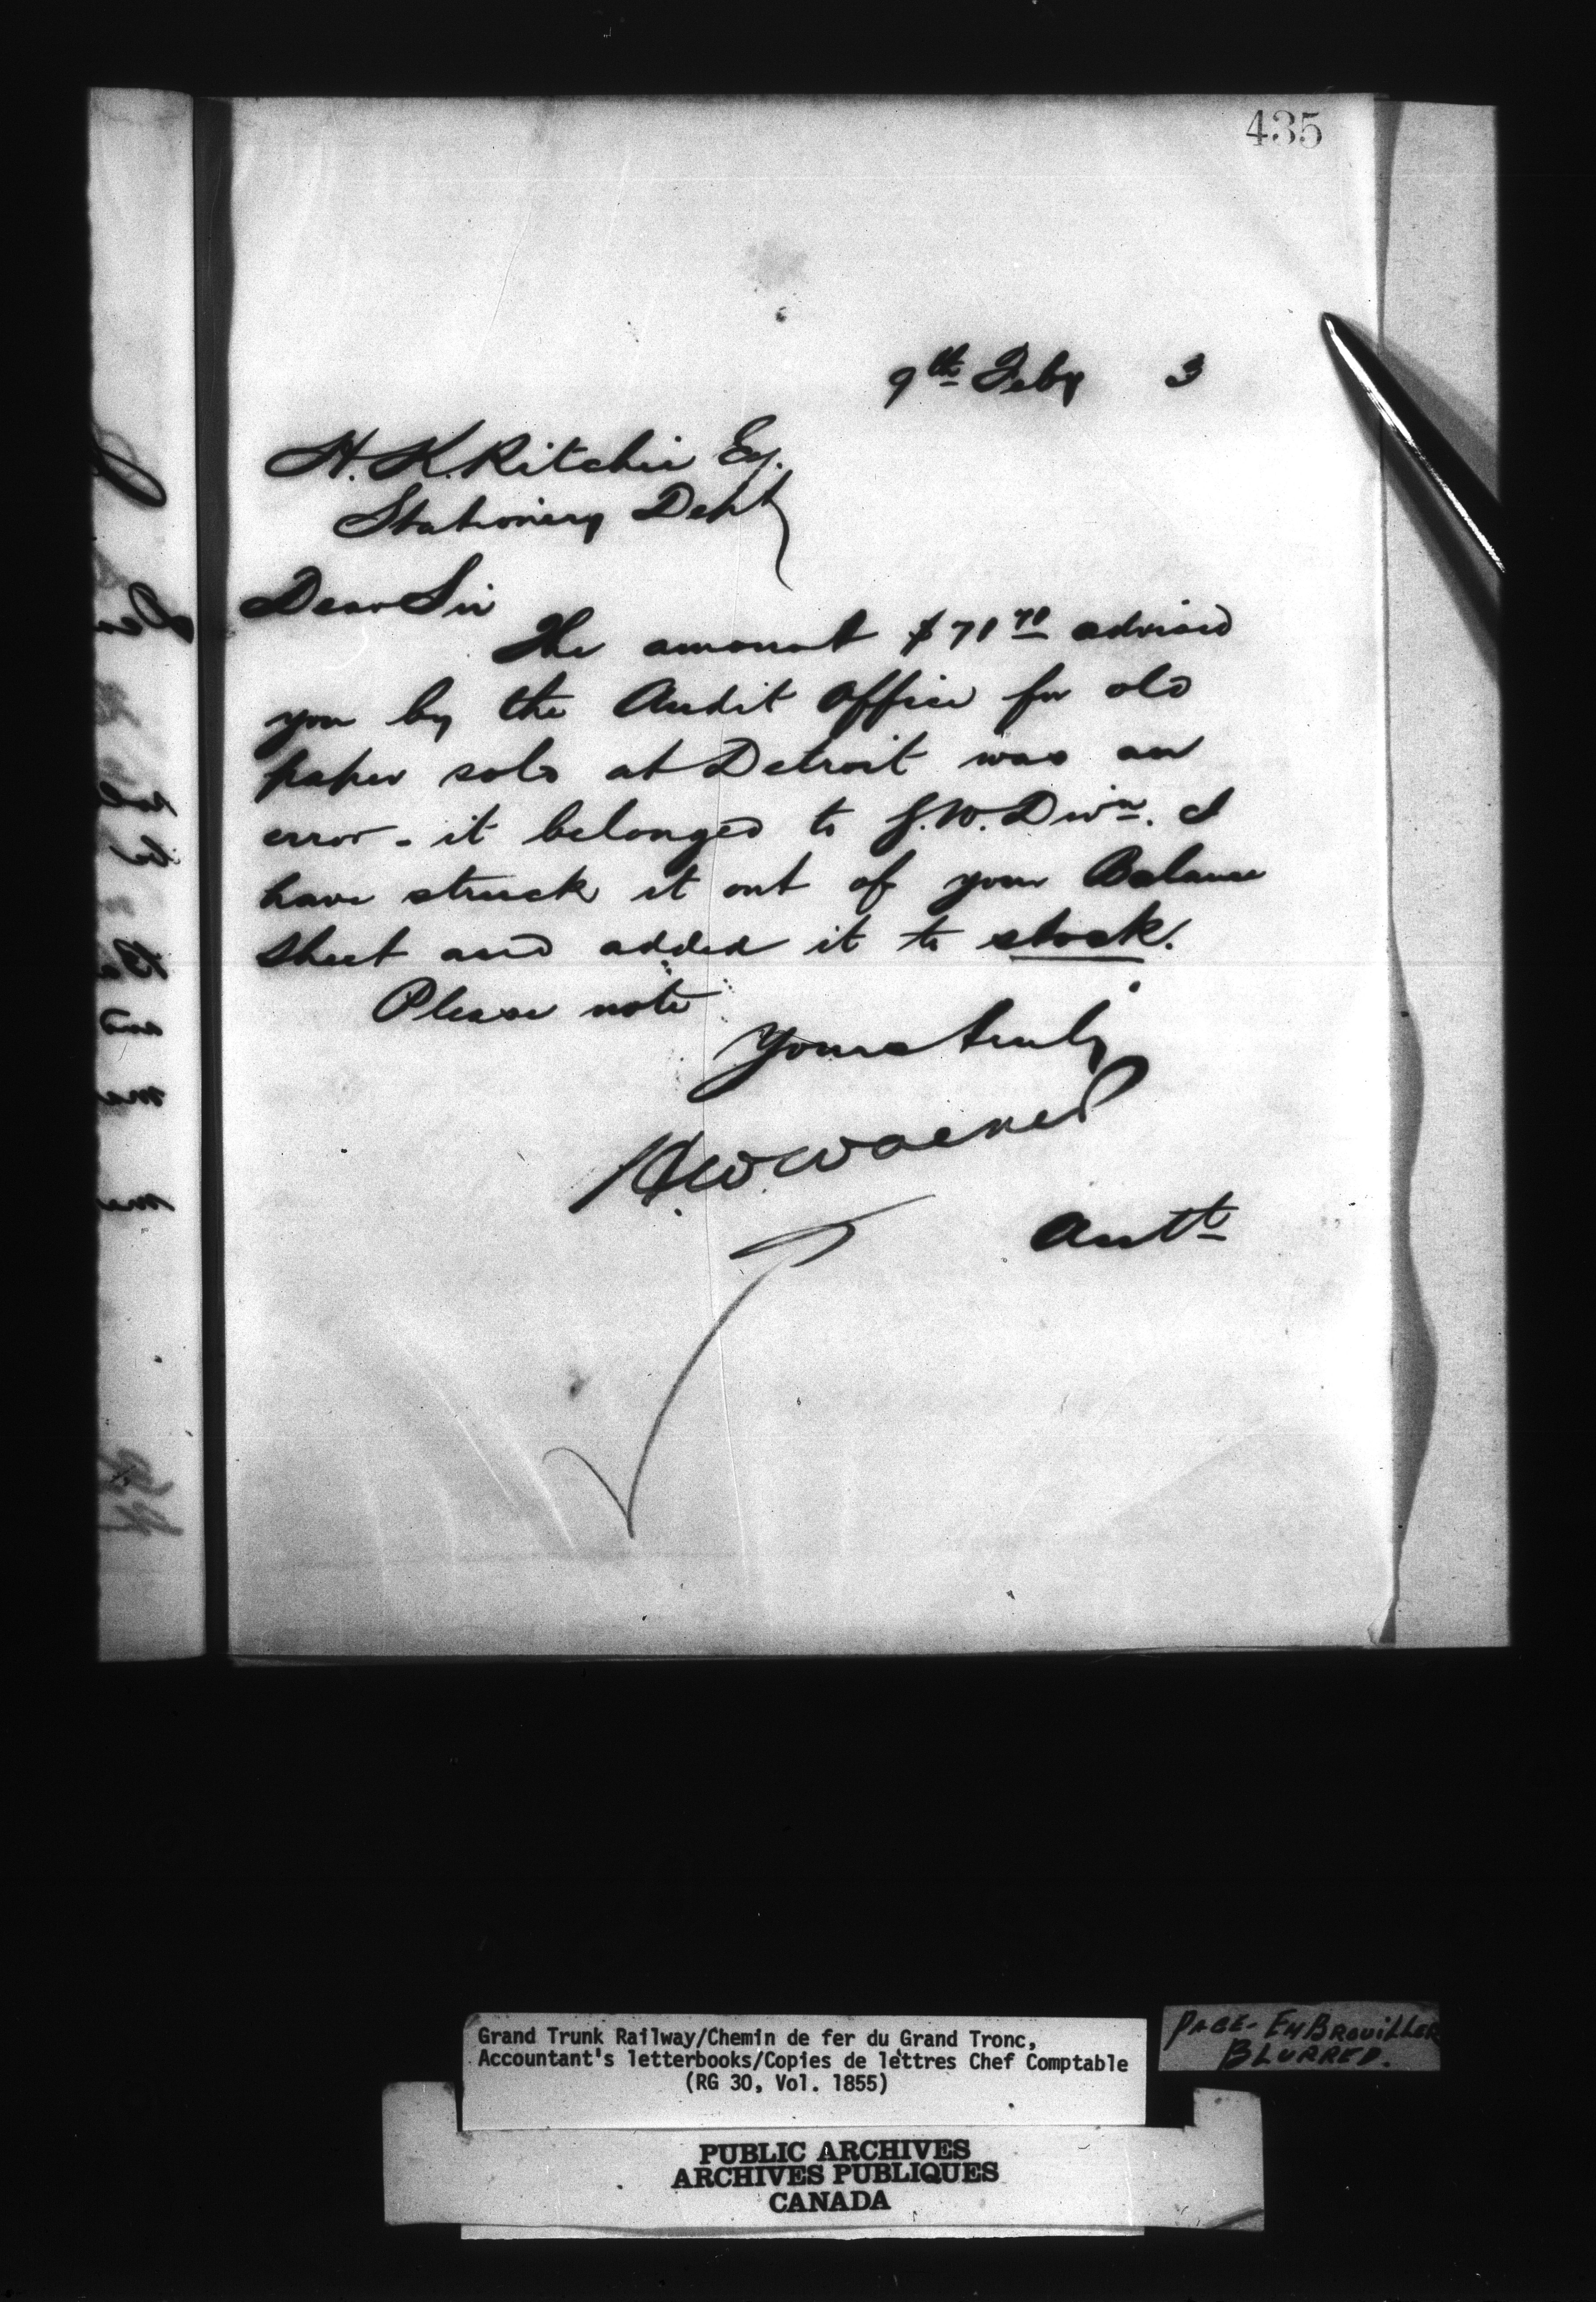 435
9th Feby 3
H. K. Ritchie Esq.
Stationery Dept
Dear Sir
The amount $71 70 advised
you by the Audit Office for old
paper sold at Detroit was an
error - it belonged to G.W. Divn. I
have struck it out of your Balance
sheet and added it to stock.
Please note
Yours truly
H W Walker
Acctt
Grand Trunk Railway/Chemin de fer du Grand Tronc,
Accountant's letterbooks/Copies de lettres Chef Comptable
(RG 30, Vol. 1855)
PAGE- EMBROUILLER
BLURRED.
PUBLIC ARCHIVES
ARCHIVES PUBLIQUES
CANADA